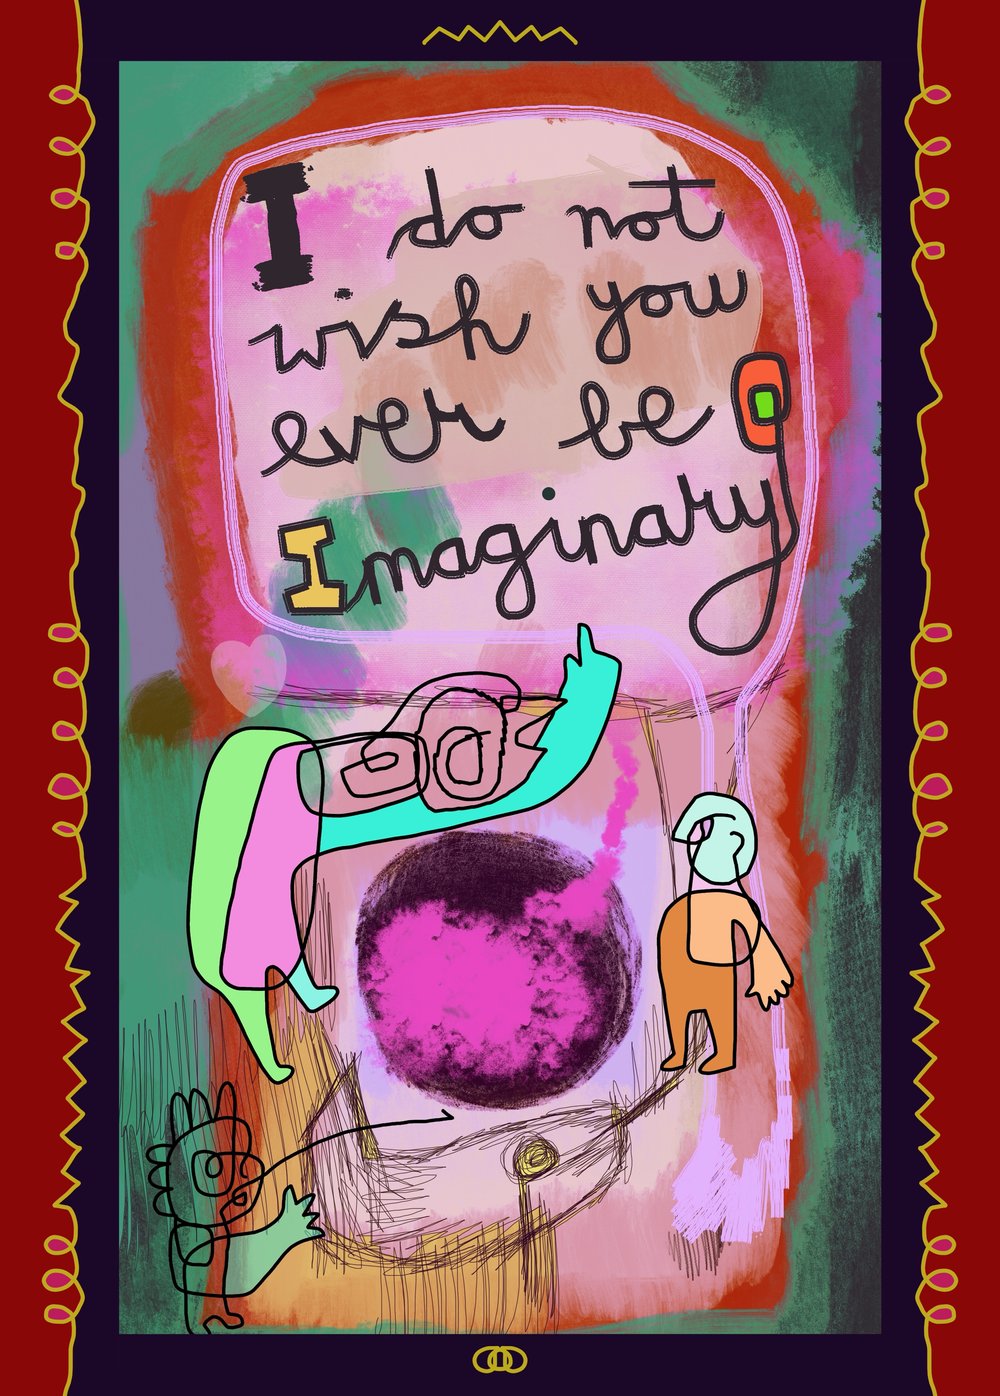 I do not
wish you
ever be
Imaginary